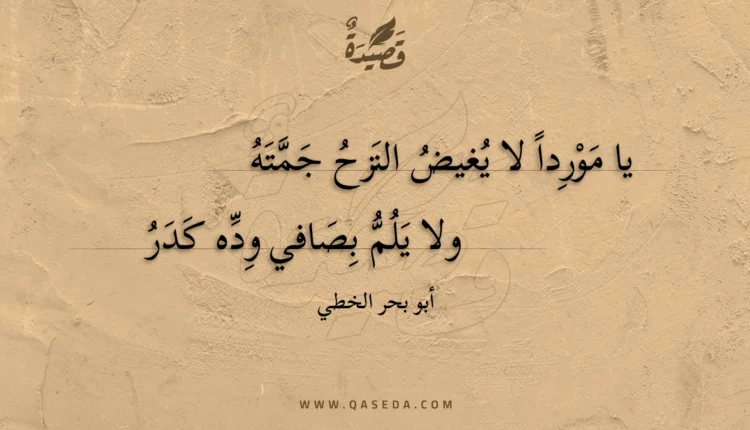 قَصِيْدَةٌ
يا مَوْرِداً لا يُغيضُ النَزحُ جَمَّتَهُ
ولا يَلُمُّ بِصَافي وِدِّه كَدَرُ
أبو بحر الخطي
WWW.QASEDA.COM